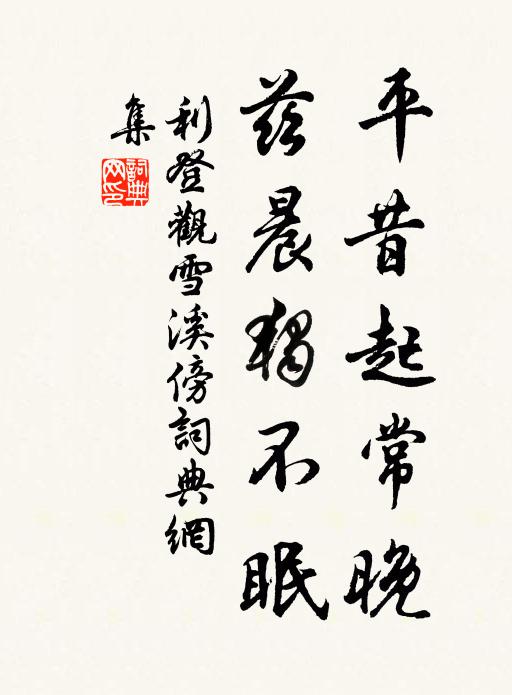 平昔起常晚
茲晨獨不眠
利登觀雪溪傍詞典網
集
詞典網印